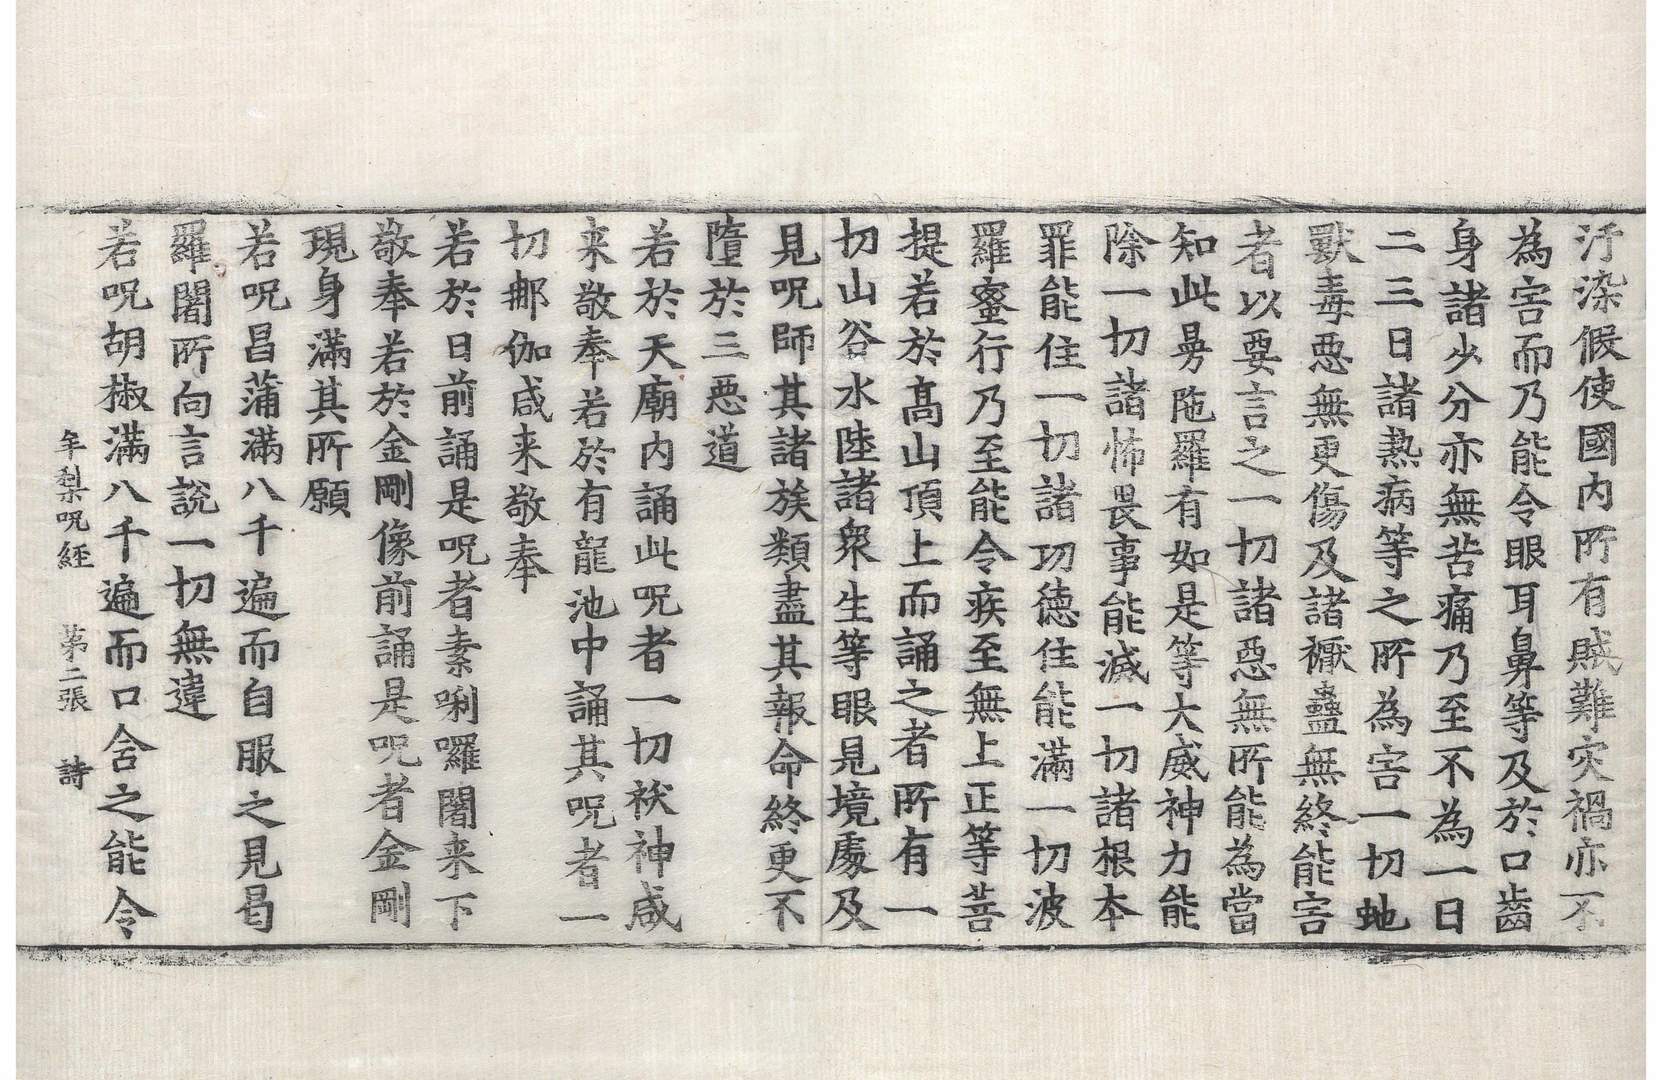 汙染假使國內所有賊難灾禍亦不
為害而乃能令眼耳鼻等及於口齒
身諸少分亦無苦痛乃至不為一日
二三日諸熱病等之所為害一切虵
獸毒惡無更傷及諸襧蠱無終能害
者以要言之一切諸惡無所能為當
知此㬅陁羅有如是等大威神力能
除一切諸怖畏事能滅一切諸根本
罪能住一切諸功德住能滿一切波
羅蜜行乃至能令疾至無上正等菩
提若於高山頂上而誦之者所有一
切山谷水陸諸衆生等眼見境處及
見呪師其諸族類盡其報命終更不
墮於三惡道
若於天廟內誦此呪者一切祅神咸
来敬奉若於有龍池中誦其呪者一
切那伽咸来敬奉
若於日前誦是呪者素唎囉闍来下
敬奉若於金剛像前誦是呪者金剛
現身滿其所願
若呪昌蒲滿八千遍而自服之見曷
羅闍所向言說一切無違
若呪胡椒滿八千遍而口含之能令
牟梨呪經 第二張 詩